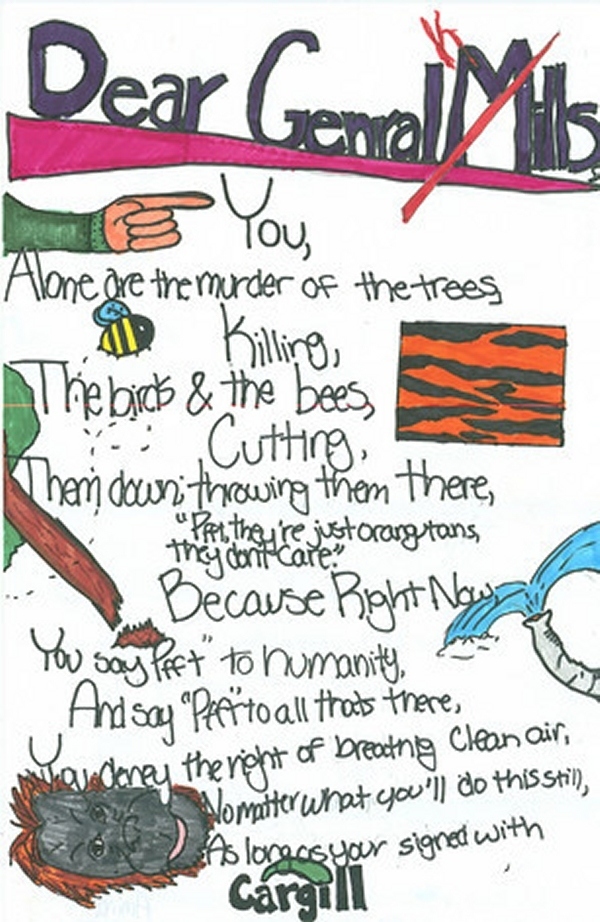 Dear Genrall Mills
You,
Alone are the murder of the trees,
Killing,
The birds & the bees,
Cutting,
Them down; throwing them there,
"Pfft, they're just orangutans,
they dont care."
Because Right Now,
You say "Pfft" to humanity,
And say "Pfft" to all thats there,
You deney the right of breating Clean air,
No matter what you'll do this still,
As long as your signed with
Cargill